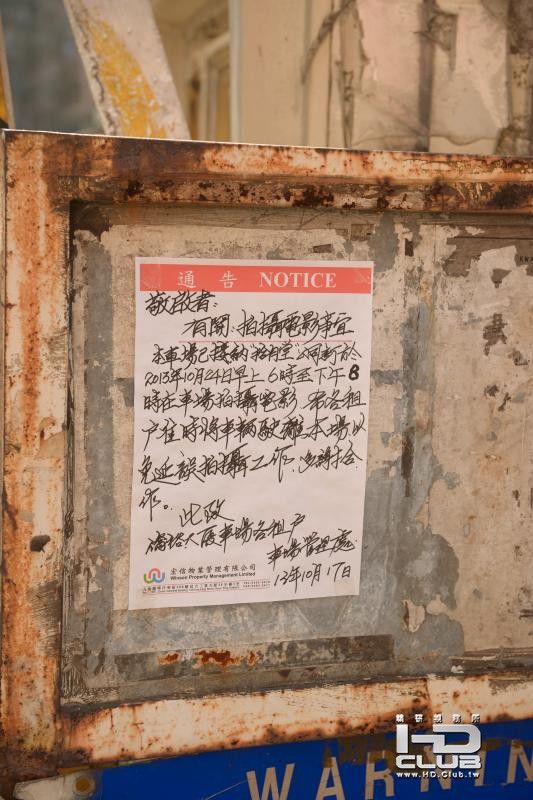 通告 NOTICE
敬啟者：
有関：拍攝電影事宜
本車場已接納
2013年10月24日早上6時至下午8
時在車場拍攝電影，希各租
戶住時將車輛駛離本場以
免延誤拍攝工作，多謝合
作。
此致
大廈車場各租戶
車場管理處
13年10月17日
宏信物業管理有限公司
Winson Property Management Limited
HD
CLUB
www.HD.Club.tw
WARNIN